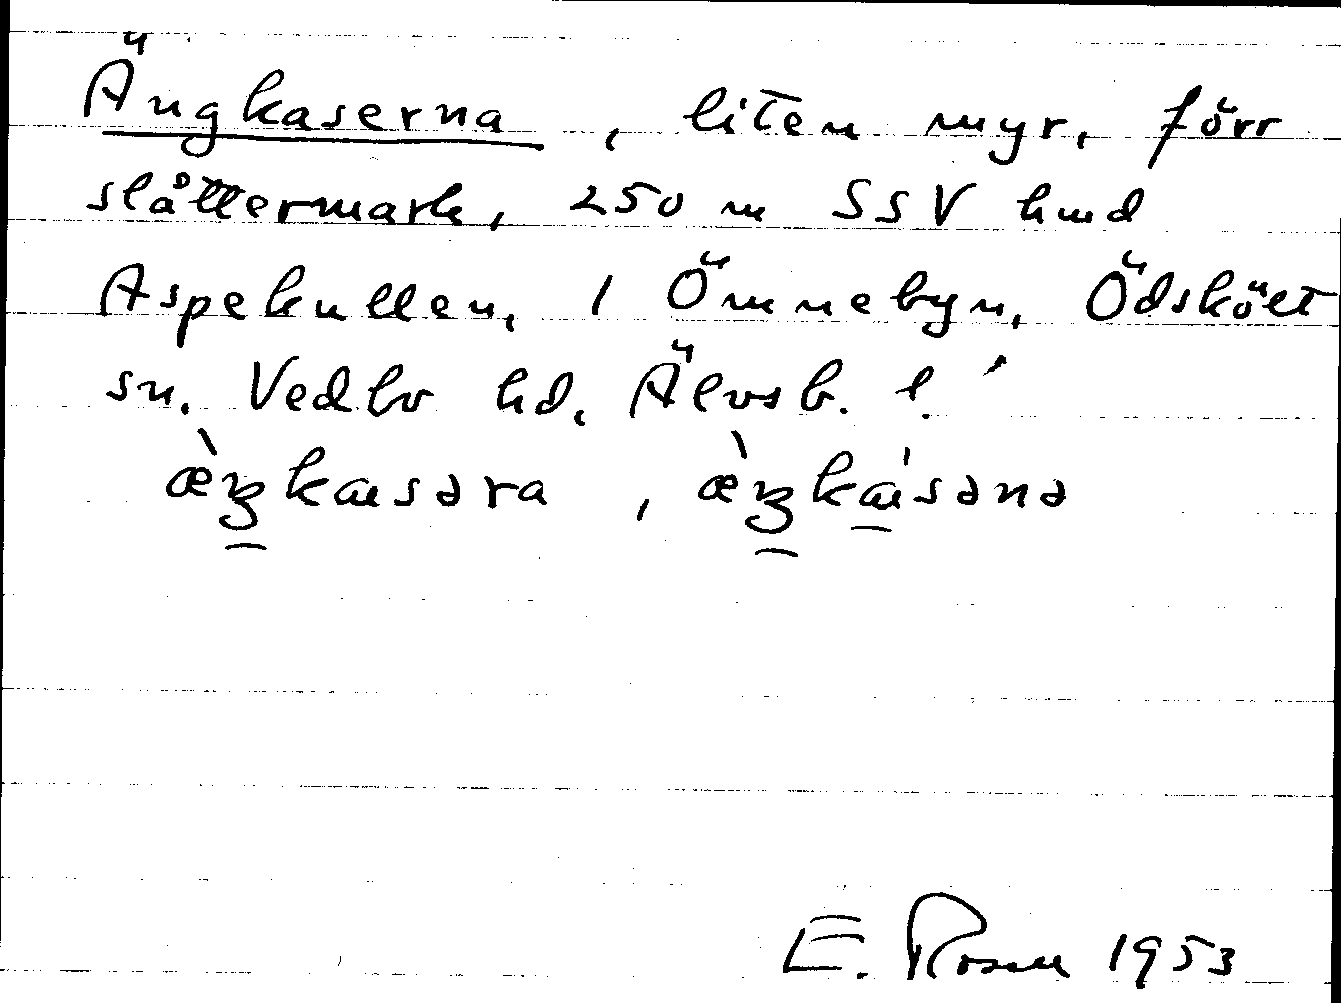 Ängkaserna, liten myr, förr
slåttermark, 250 m SSV hmd
Aspekullen, 1 Ömnebyn, Ödskölt
sn. Vedbo hd. Älvsb. l.
æ̀ŋkasəra, æ̀ŋkásənə
E. Rosen 1953